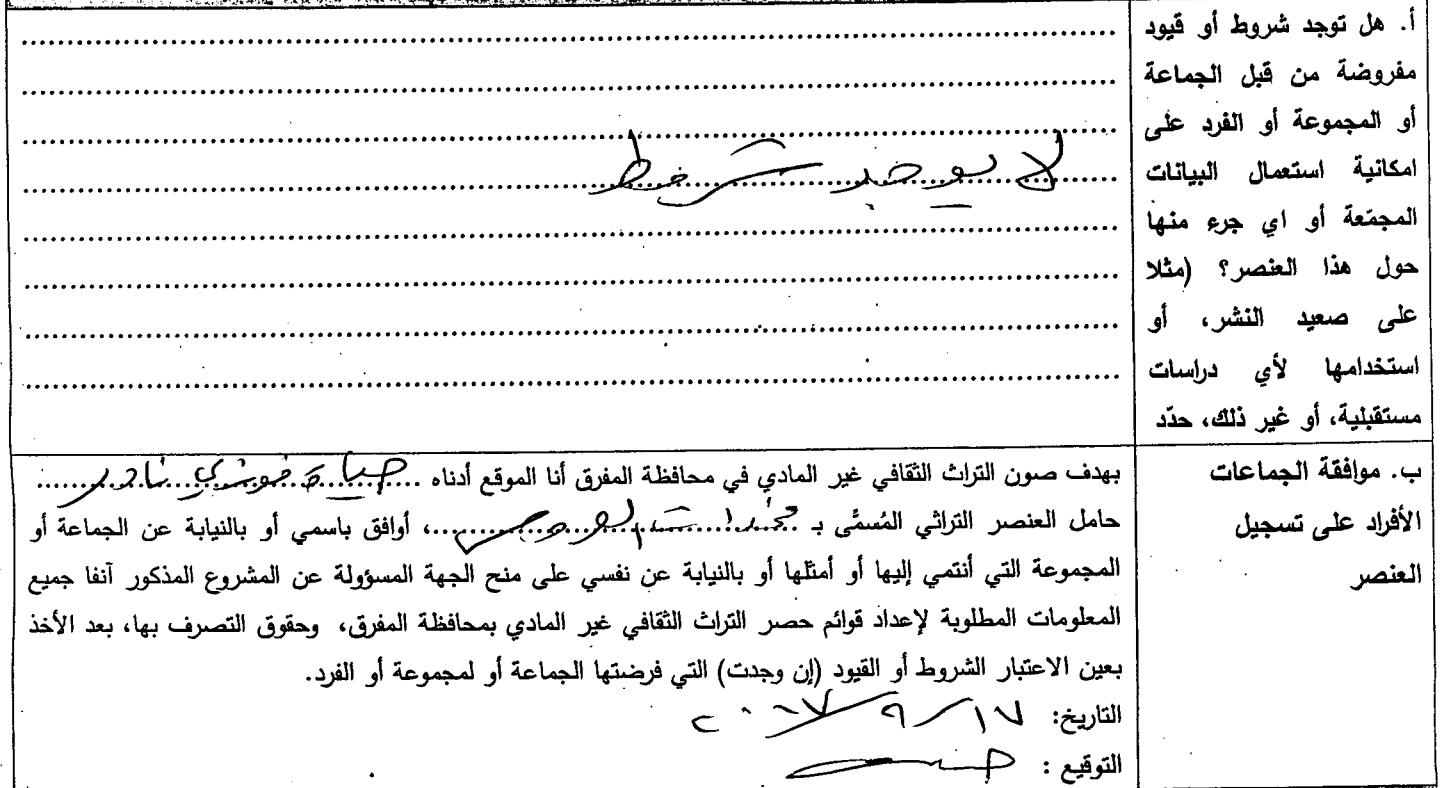 أ. هل توجد شروط أو قيود
مفروضة من قبل الجماعة
أو المجموعة أو الفرد على
امكانية استعمال البيانات
المجمّعة أو اي جرء منها
حول هذا العنصر؟ (مثلا
على صعيد النشر، أو
استخدامها لأي دراسات
مستقبلية، أو غير ذلك، حدّد
لا يوجد شروط
ب. موافقة الجماعات
الأفراد على تسجيل
العنصر
بهدف صون التراث الثقافي غير المادي في محافظة المفرق أنا الموقع أدناه
حامل العنصر التراثي المُسمَّى بـ ، أوافق باسمي أو بالنيابة عن الجماعة أو
المجموعة التي أنتمي إليها أو أمثلها أو بالنيابة عن نفسي على منح الجهة المسؤولة عن المشروع المذكور آنفا جميع
المعلومات المطلوبة لإعداد قوائم حصر التراث الثقافي غير المادي بمحافظة المفرق، وحقوق التصرف بها، بعد الأخذ
بعين الاعتبار الشروط أو القيود (إن وجدت) التي فرضتها الجماعة أو لمجموعة أو الفرد.
التاريخ: ١٧/٩/٢٠١٧
التوقيع :